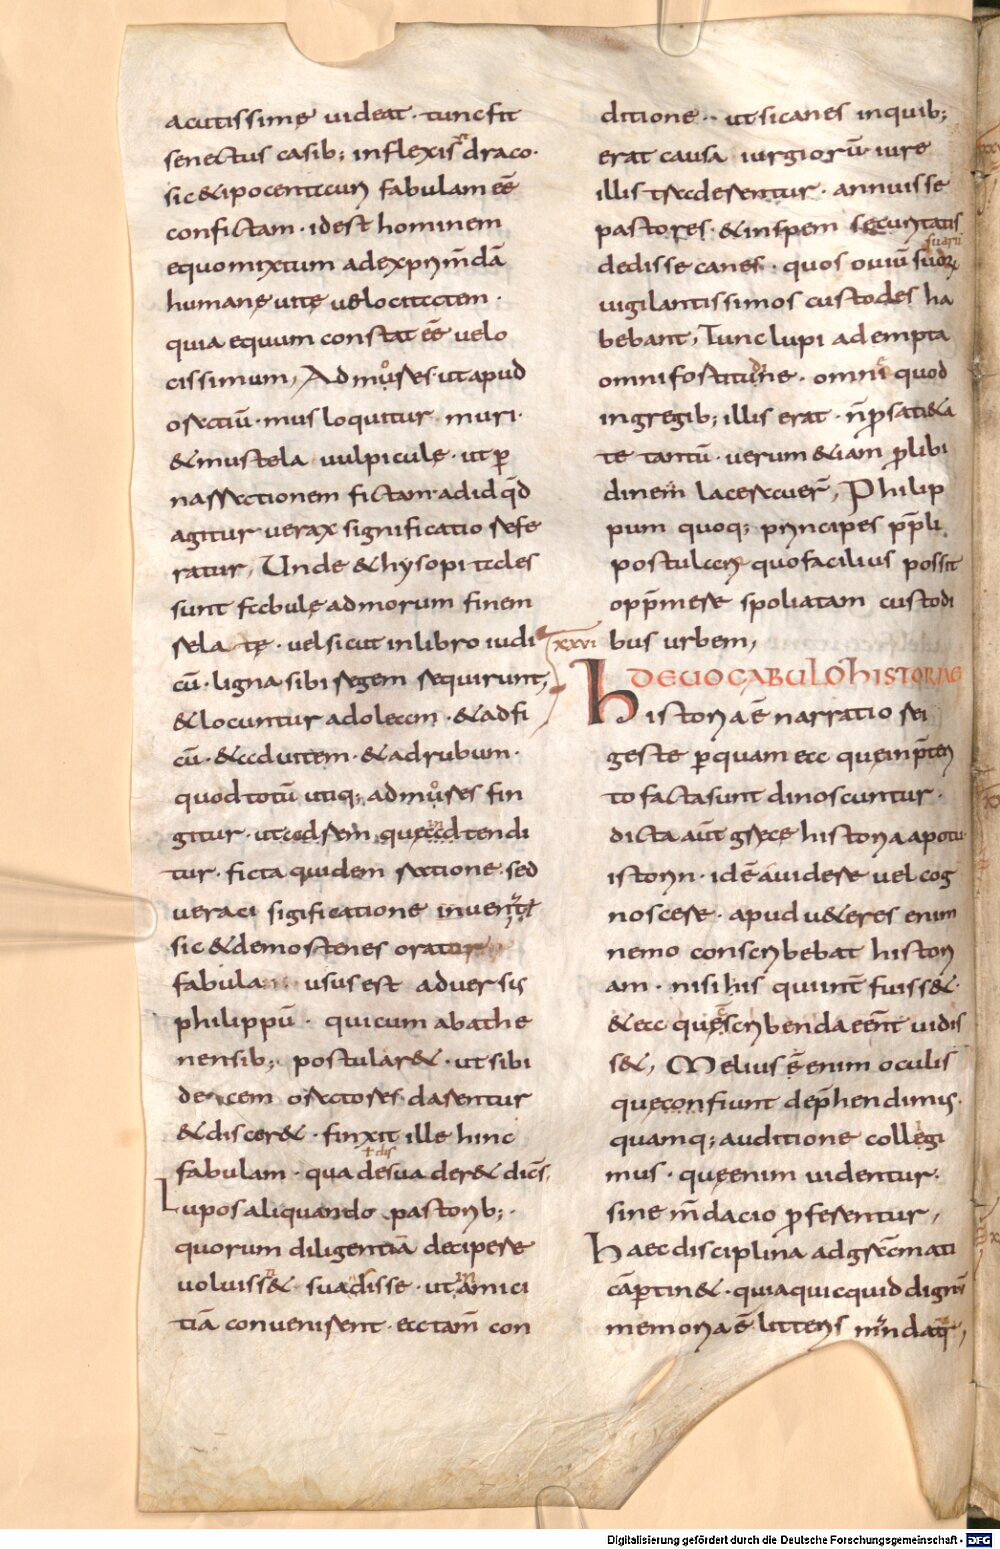 acutissimę uideat · tunc fit
senectus casib; inflexis draco ·
sic & ipocentaurỹ fabulam eē
confictam · id est hominem
equo mixtum ad exprim̄dā
humanę uitę uelocitatem ·
quia equum constat eē uelo
cissimum, Ad muͦres · ut apud
oratiū · mus loquitur muri ·
& mustela uulpiculę · ut ꝑ
narrationem fictam · ad id qd̄
agitur uerax significatio refe
ratur, Unde & hysopi tales
sunt fabulę ad morum finem
relatę · uel sicut in libro iudi
cū · ligna sibi regem requirunt,
& locuntur ad oleam · & ad fi
cū · & ad uitem · & ad rubum ·
quod totū utiq; ad muͦres fin
gitur · ut ad rem quę intendi
tur · ficta quidem ratione · sed
ueraci sigificatione
sic & demostenes orator
fabula usus est aduersis
philippū · qui cum ab athe
nensib; postular& · ut sibi
decem oratores darentur
& discer& · finxit ille hinc
fabulam · qua desuader& dic̄s,
Lupos aliquando pastorib; ·
quorum diligentiā decipere
uoluiss& suadisse · ut in amici
tiā conuenirent · ac tam̄ con
ditione · ut si canes in quib;
erat causa iurgiorū iure
illis traderentur · annuisse
pastores · & in spem securitatis
dedisse canes · quos ouiū suarū
uigilantissimos custodes ha
bebant, Tunc lupi adempta
omni fortitudine · omne quod
in gregib; illis erat · n̄ ꝓ satiẽta
te tantū · uerum & iam ꝓ libi
dinem lacerauer̄, Philip
pum quoq; principes pp̄li
postulare quo facilius possit
opp̄mere spoliatam custodi
bus urbem,
xxvi
DE VOCABULO HISTORIAE
Historia ē narratio rei
gestę ꝑ quam ea quę in p̄teri
to facta sunt dinoscuntur ·
dicta aut̄ grece historia apotu
istorin · id ē a uidere uel cog
noscere · apud u&eres enim
nemo conscribebat histori
am · nisi his qui int̄fuiss& ·
& ea quę scribenda eēnt uidis
s&, Melius ē enim oculis
que confiunt dep̄hendimus ·
quam q; auditione collegi
mus · quę enim uidentur ·
sine m̄dacio ꝓferentur,
Haec disciplina ad gram̄ati
cā ꝑtin& · quia quicquid dignū
memoria ē litteris mandat,
Digitalisierung gefördert durch die Deutsche Forschungsgemeinschaft - DFG